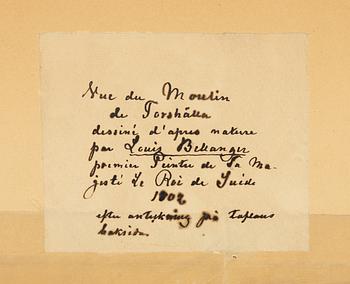 Vue du Moulin
de Torshälla
dessiné d'apres nature
par Louis Bellanger
premier Peintre de Sa Ma-
jesté Le Roi de Suéde
1802
efter anteckning på taflans
baksida.